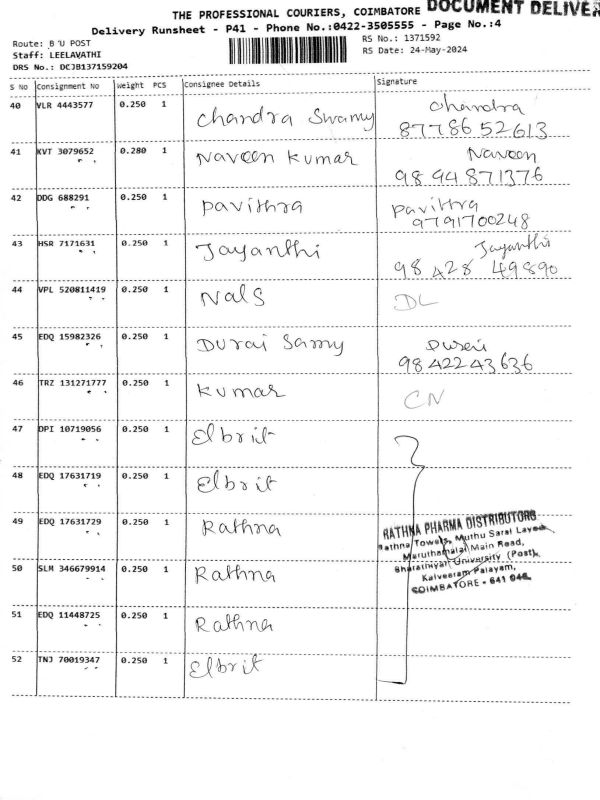 THE PROFESSIONAL COURIERS, COIMBATORE DOCUMENT DELIVER
Delivery Runsheet - P41 - Phone No.:0422-3505555 - Page No.:4
Route: B'U POST
RS No.: 1371592
Staff: LEELAVATHI
RS Date: 24-May-2024
DRS No.: DCJB137159204
S No Consignment No Weight PCS Consignee Details Signature
40 VLR 4443577 0.250 1 Chandra Swamy Chandra
87786 52613
41 KVT 3079652 0.280 1 Naveen kumar Naveen
98 94 871376
42 DDG 688291 0.250 1 pavithra Pavithra
9791700248
43 HSR 7171631 0.250 1 Jayanthi Jayanthi
98 428 49890
44 VPL 520811419 0.250 1 Nals DL
45 EDQ 15982326 0.250 1 Durai Samy Durai
98 422 43636
46 TRZ 131271777 0.250 1 kumar CN
47 DPI 10719056 0.250 1 Elbrit
48 EDQ 17631719 0.250 1 Elbrit
49 EDQ 17631729 0.250 1 Rathna
RATHNA PHARMA DISTRIBUTORS
Rathna Towers, Muthu Sarai Layout
Maruthamalai Main Road,
Bharathiyar University (Post),
Kalveeram Palayam,
COIMBATORE - 641 046.
50 SLM 346679914 0.250 1 Rathna
51 EDQ 11448725 0.250 1 Rathna
52 TNJ 70019347 0.250 1 Elbrit